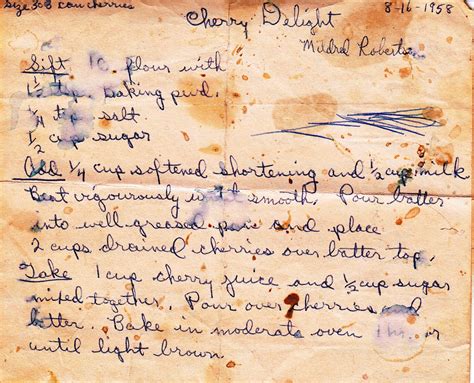 Size 303 can cherries
Cherry Delight
8-16-1958
Mildred Roberts
Sift 1c. flour with
1½ tsp. baking pwd.
¼ tsp salt
½ cup sugar
Add ¼ cup softened shortening and ½ cup milk
Beat vigourously until smooth. Pour batter
into well-greased pan and place
2 cups drained cherries over batter top.
Take 1 cup cherry juice and ½ cup sugar
mixed together. Pour over cherries and
batter. Bake in moderate oven 1 hr. or
until light brown